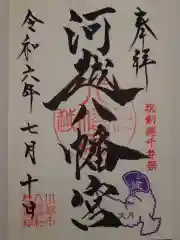 奉拝
祝創建千年祭
河越八幡宮
令和六年七月十日
文月